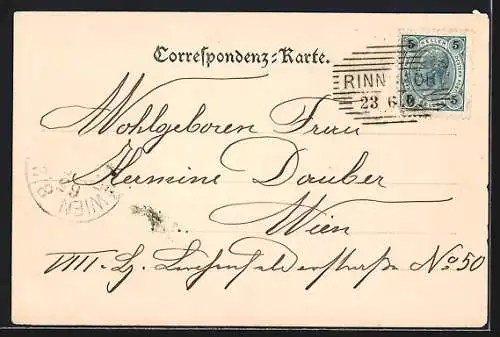 Correspondenz-Karte.
5 HELLER 5
5 5
RINN
23 6
Wohlgeboren Frau
Hermine Dauber
Wien
WIEN
VIII. Lerchenfelderstraße No 50